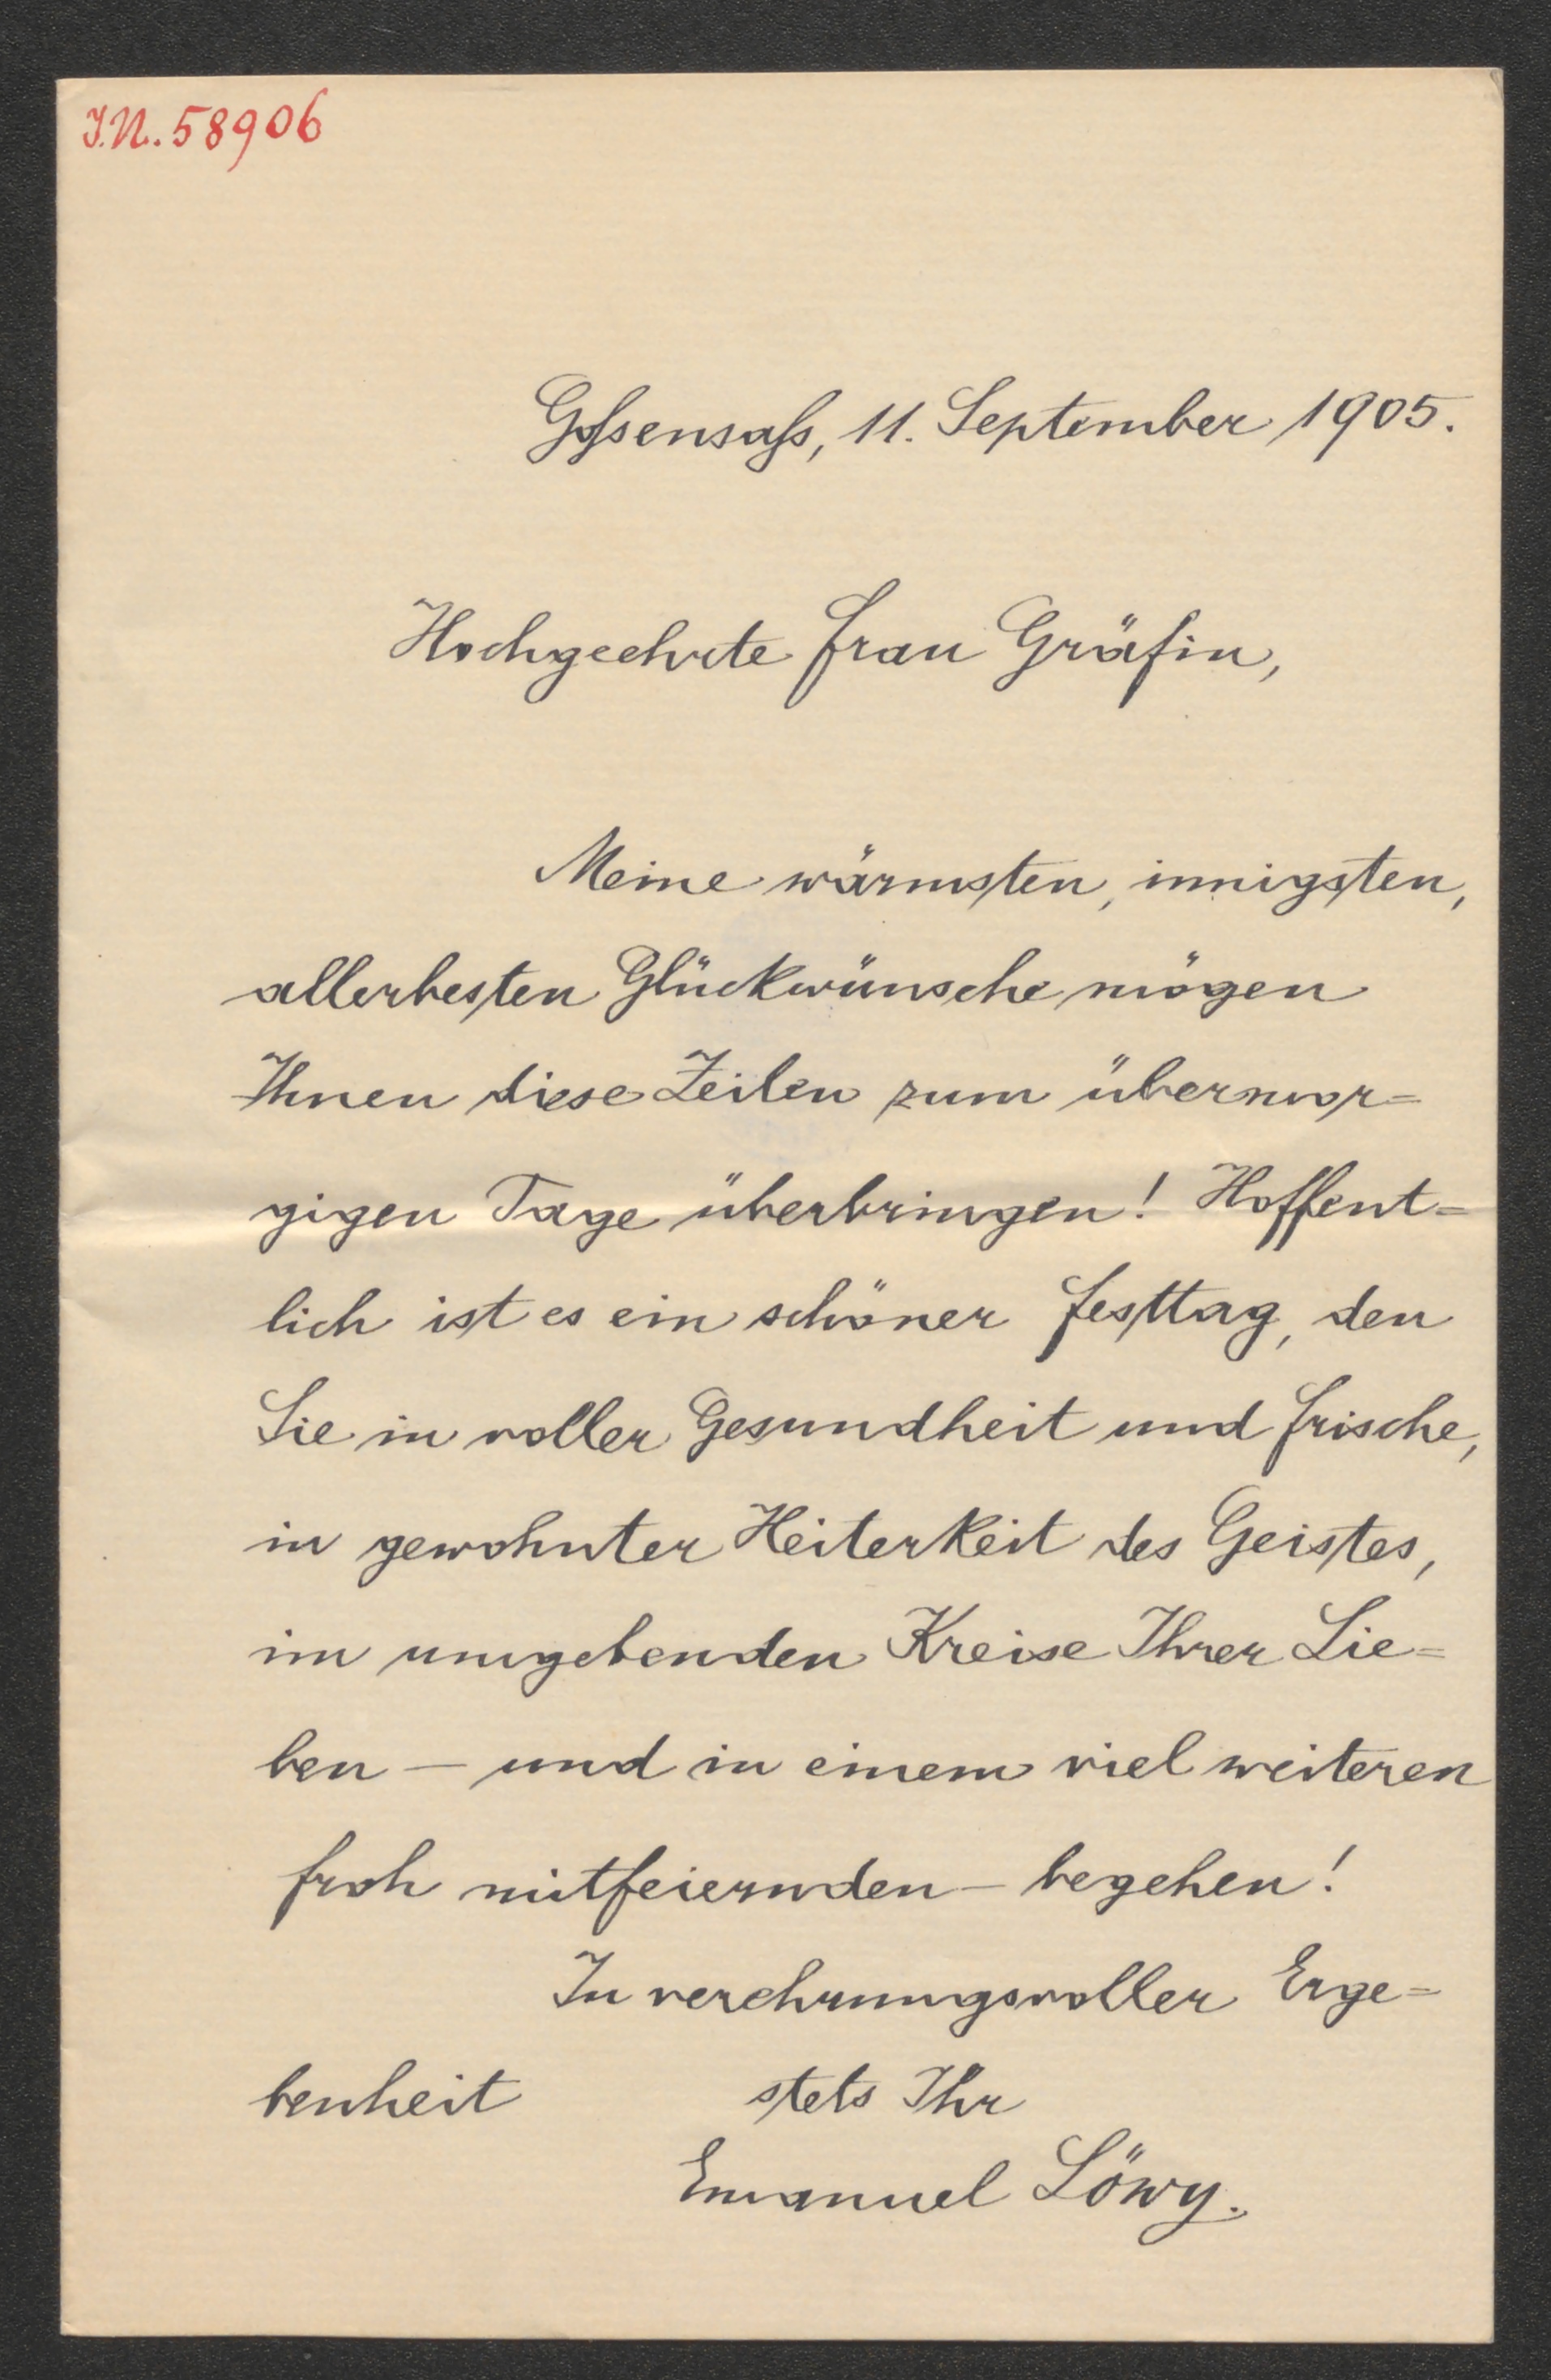 I.N. 58906
Gossensass, 11. September 1905.
Hochgeehrte Frau Gräfin,
Meine wärmsten, innigsten,
allerbesten Glückwünsche mögen
Ihnen diese Zeilen zum übermor=
gigen Tage überbringen! Hoffent=
lich ist es ein schöner Festtag, den
Sie in voller Gesundheit und Frische,
in gewohnter Heiterkeit des Geistes,
im umgebenden Kreise Ihrer Lie=
ben – und in einem viel weiteren
froh mitfeiernden – begehen!
In verehrungsvoller Erge=
benheit stets Ihr
Emanuel Löwy.